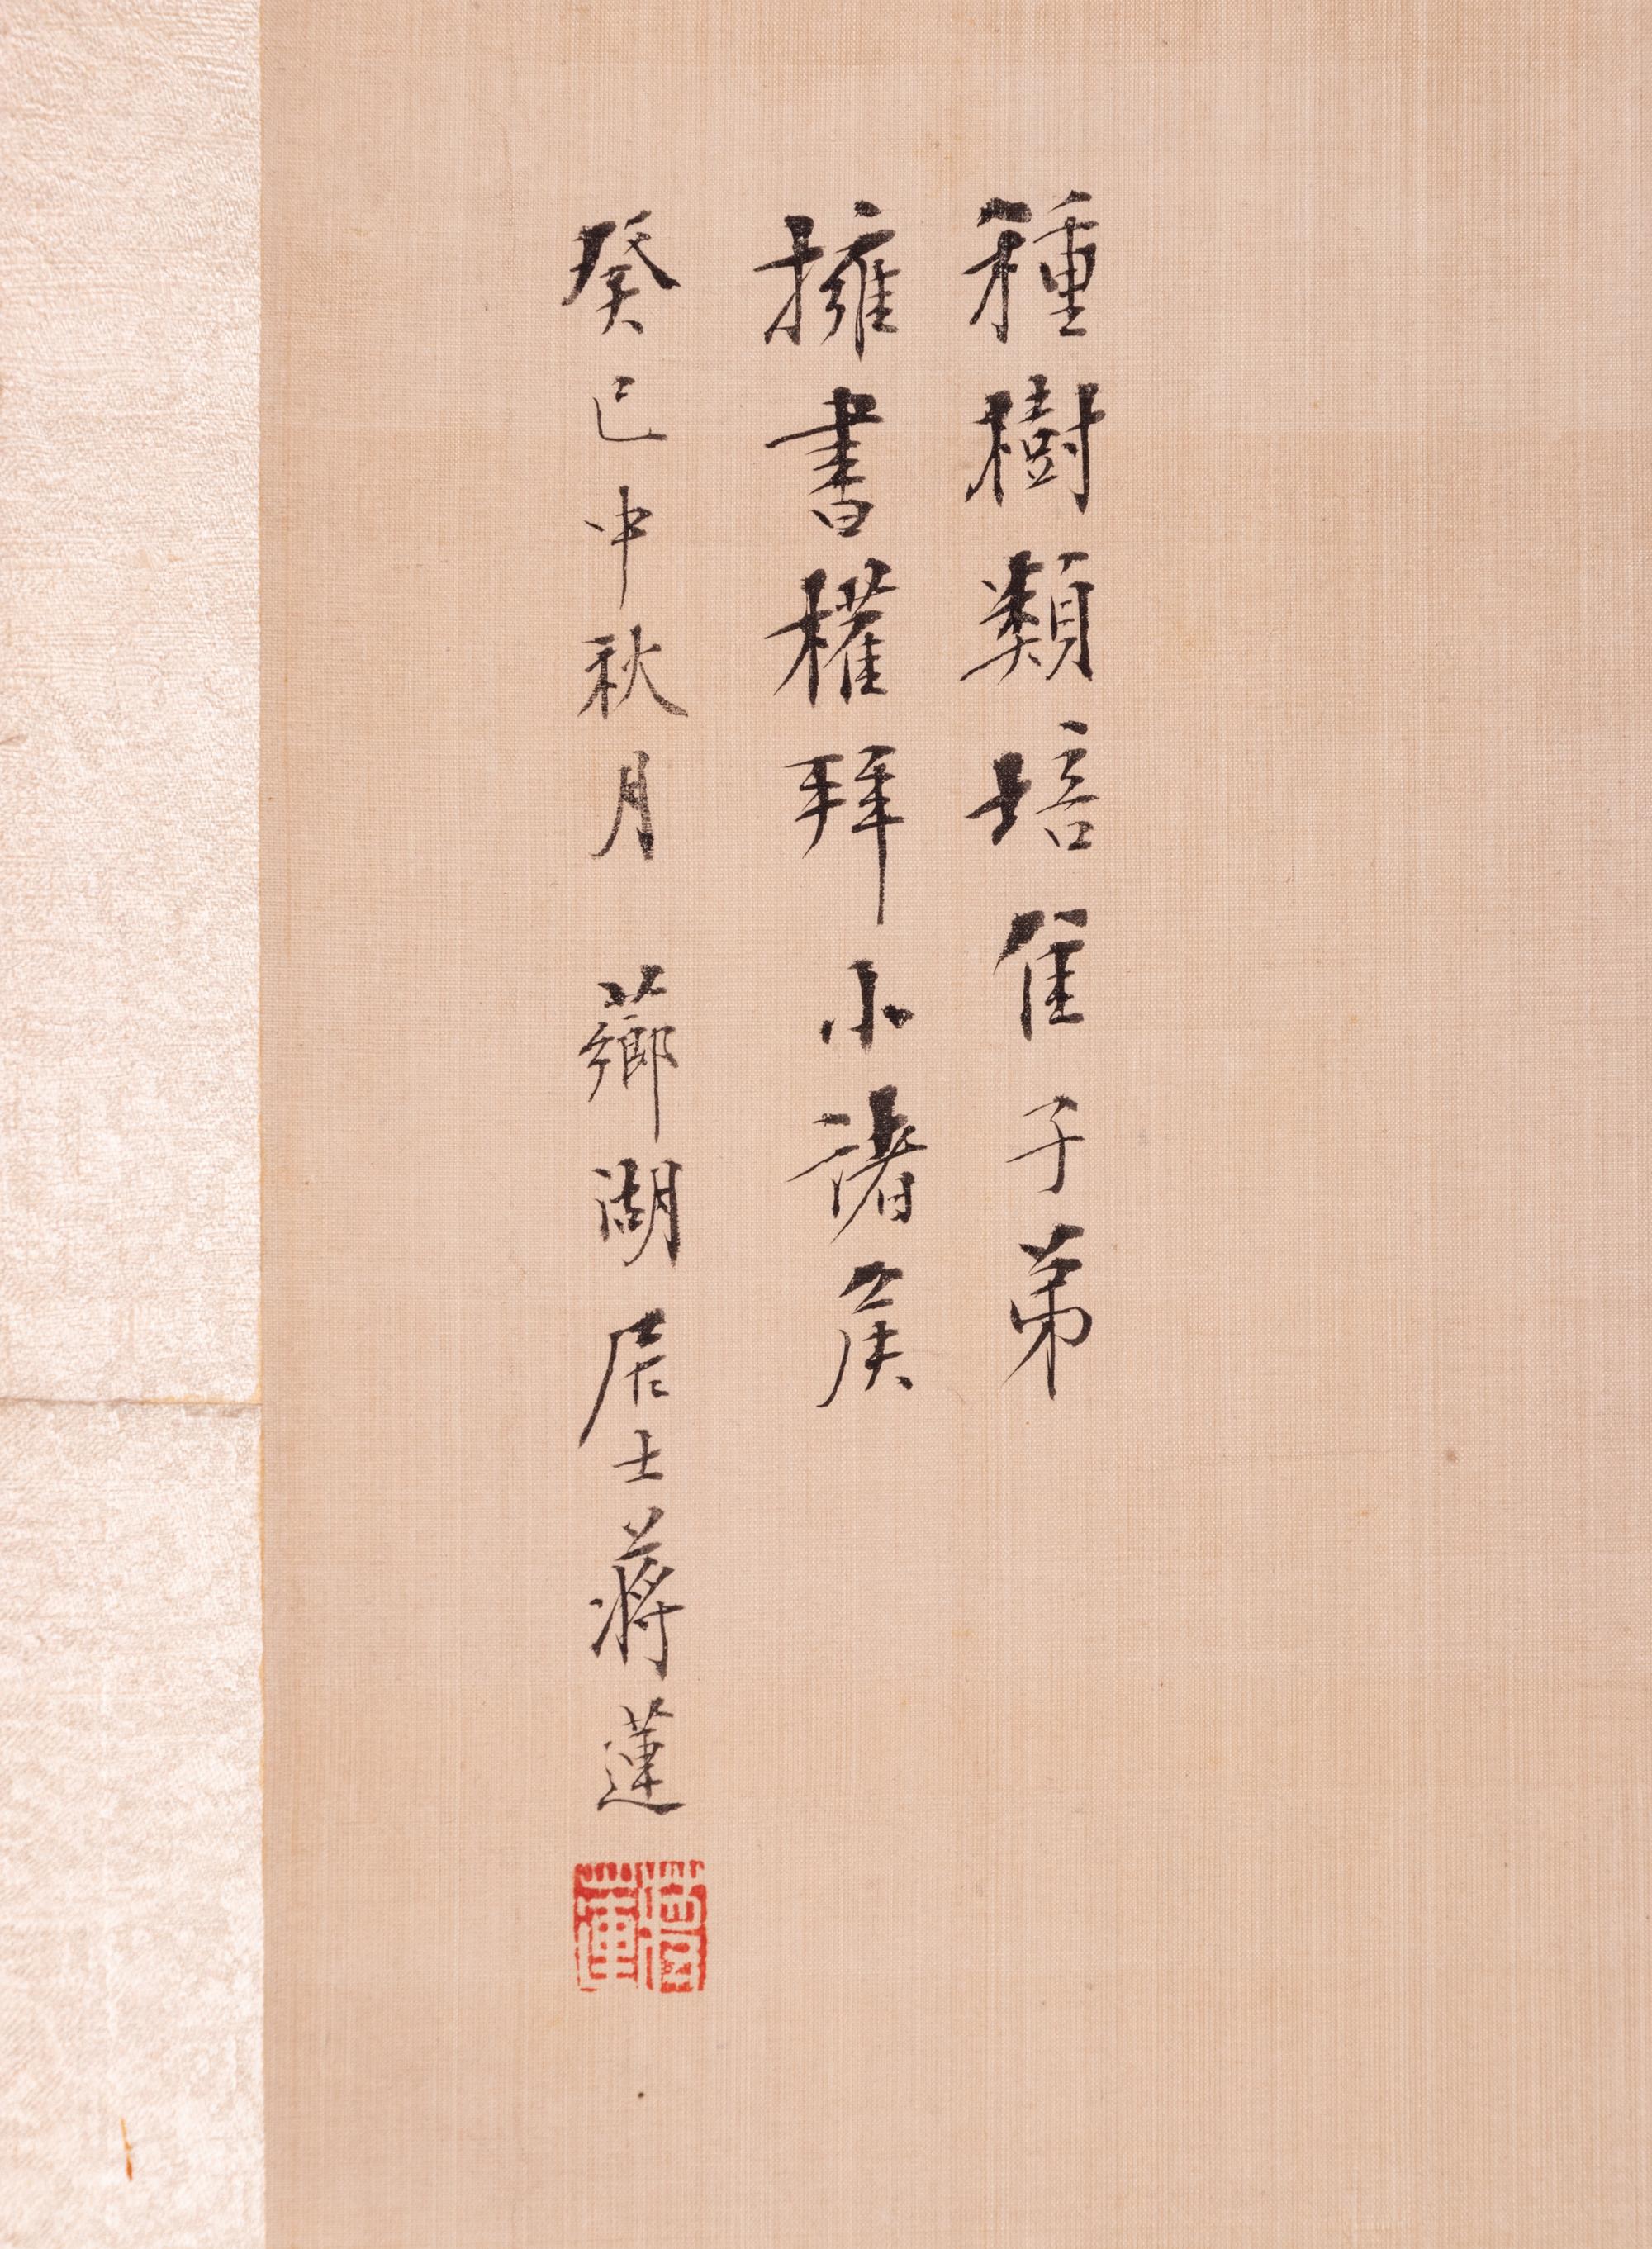 種樹類培佳子弟
擁書權拜小諸侯
癸巳中秋月 薌湖居士蔣蓮
蔣蓮